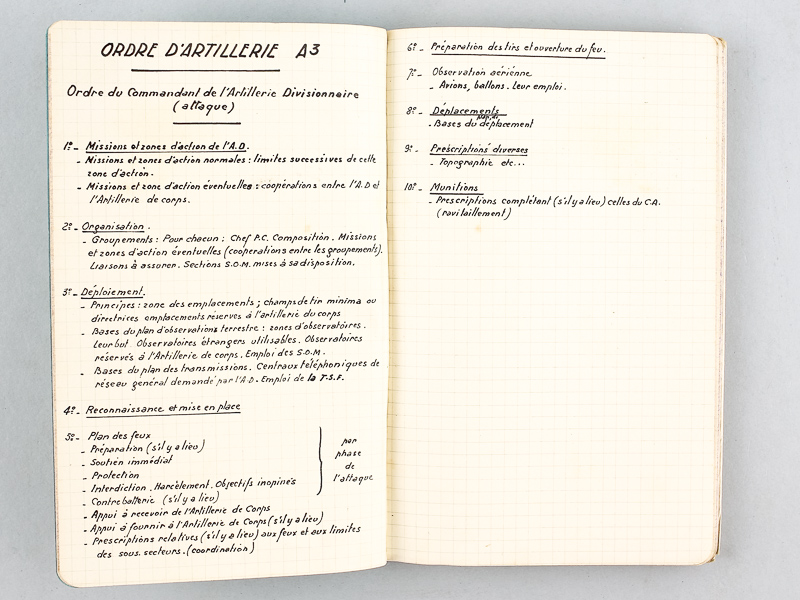 ORDRE D'ARTILLERIE A3
Ordre du Commandant de l'Artillerie Divisionnaire
(attaque)
1º- Missions et zones d'action de l'A.D.
- Missions et zones d'action normales : limites successives de cette
zone d'action.
- Missions et zone d'action éventuelles : coopérations entre l'A.D et
l'Artillerie de corps.
2º- Organisation.
- Groupements : Pour chacun ; Chef P.C. Composition. Missions
et zones d'action éventuelles (coopérations entre les groupements).
Liaisons à assurer. Sections S.O.M. mises à sa disposition.
3º- Déploiement.
- Principes : zone des emplacements ; champs de tir minima ou
directrices emplacements réservés à l'artillerie du corps
- Bases du plan d'observations terrestre : zones d'observatoires.
Leur but. Observatoires étrangers utilisables. Observatoires
réservés à l'Artillerie de corps. Emploi des S.O.M.
- Bases du plan des transmissions. Centraux téléphoniques de
réseau général demandé par l'A.D. Emploi de la T.S.F.
4º- Reconnaissance et mise en place
5º- Plan des feux
- Préparation (s'il y a lieu)
- Soutien immédiat
- Protection
- Interdiction. Harcèlement. Objectifs inopinés
par
phase
de
l'attaque
- Contrebatterie (s'il y a lieu)
- Appui à recevoir de l'Artillerie de Corps
- Appui à fournir à l'Artillerie de Corps (s'il y a lieu)
- Prescriptions relatives (s'il y a lieu) aux feux et aux limites
des sous.secteurs. (coordination)
6º- Préparation des tirs et ouverture du feu.
7º- Observation aérienne
- Avions, ballons. Leur emploi.
8º- Déplacements
- Bases du plan de déplacement
9º- Prescriptions diverses
- Topographie etc...
10º- Munitions
- Prescriptions complétant (s'il y a lieu) celles du C.A.
(ravitaillement)